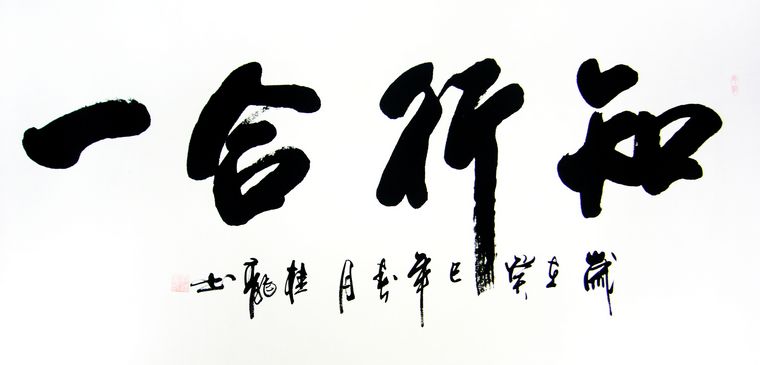 知行合一
歲在癸巳年春月桂龍书